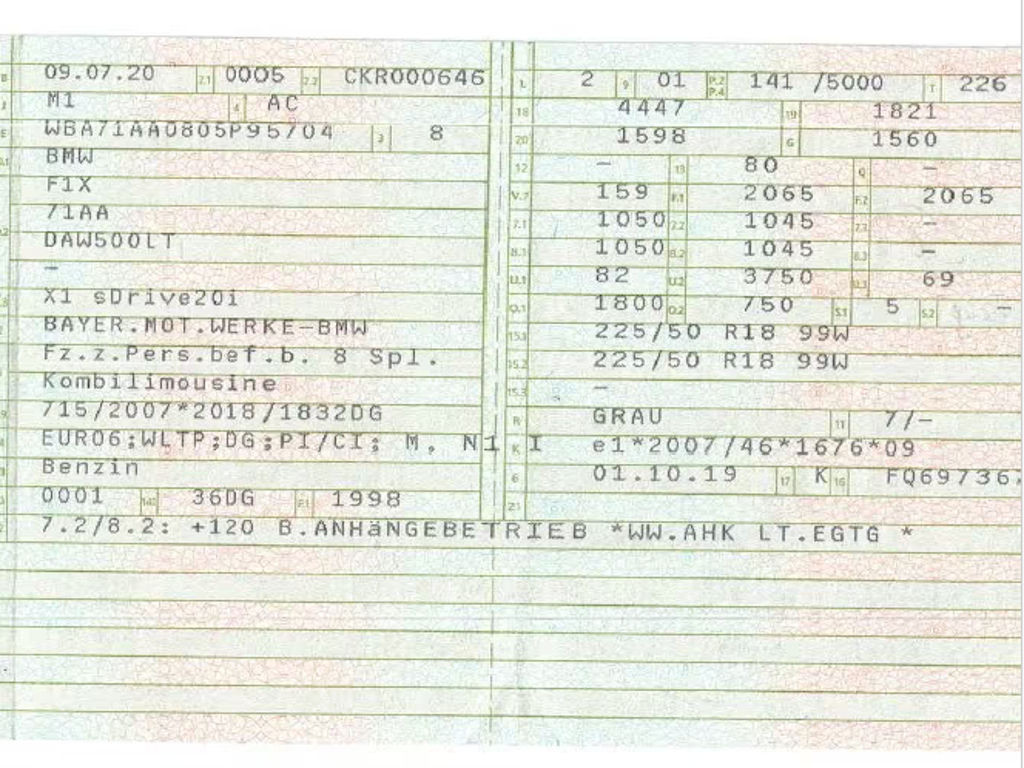 B 09.07.20 2.1 0005 2.2 CKR000646
J M1 4 AC
E WBA71AA0805P95704 3 8
D.1 BMW
F1X
71AA
D.2 DAW500LT
–
X1 sDrive20i
BAYER.MOT.WERKE-BMW
Fz.z.Pers.bef.b. 8 Spl.
Kombilimousine
715/2007*2018/1832DG
EURO6;WLTP;DG;PI/CI; M, N1 I
Benzin
0001 14.1 36DG P.1 1998
7.2/8.2: +120 B.ANHäNGEBETRIEB *WW.AHK LT.EGTG *
L 2 9 01 P.2 P.4 141 /5000 T 226
18 4447 19 1821
20 1598 G 1560
12 – 13 80 Q –
V.7 159 F.1 2065 F.2 2065
7.1 1050 7.2 1045 7.3 –
8.1 1050 8.2 1045 8.3 –
U.1 82 U.2 3750 U.3 69
O.1 1800 O.2 750 S.1 5 S.2 –
15.1 225/50 R18 99W
15.2 225/50 R18 99W
15.3 –
R GRAU 11 7/–
K e1*2007/46*1676*09
6 01.10.19 17 K 16 FQ69736
21